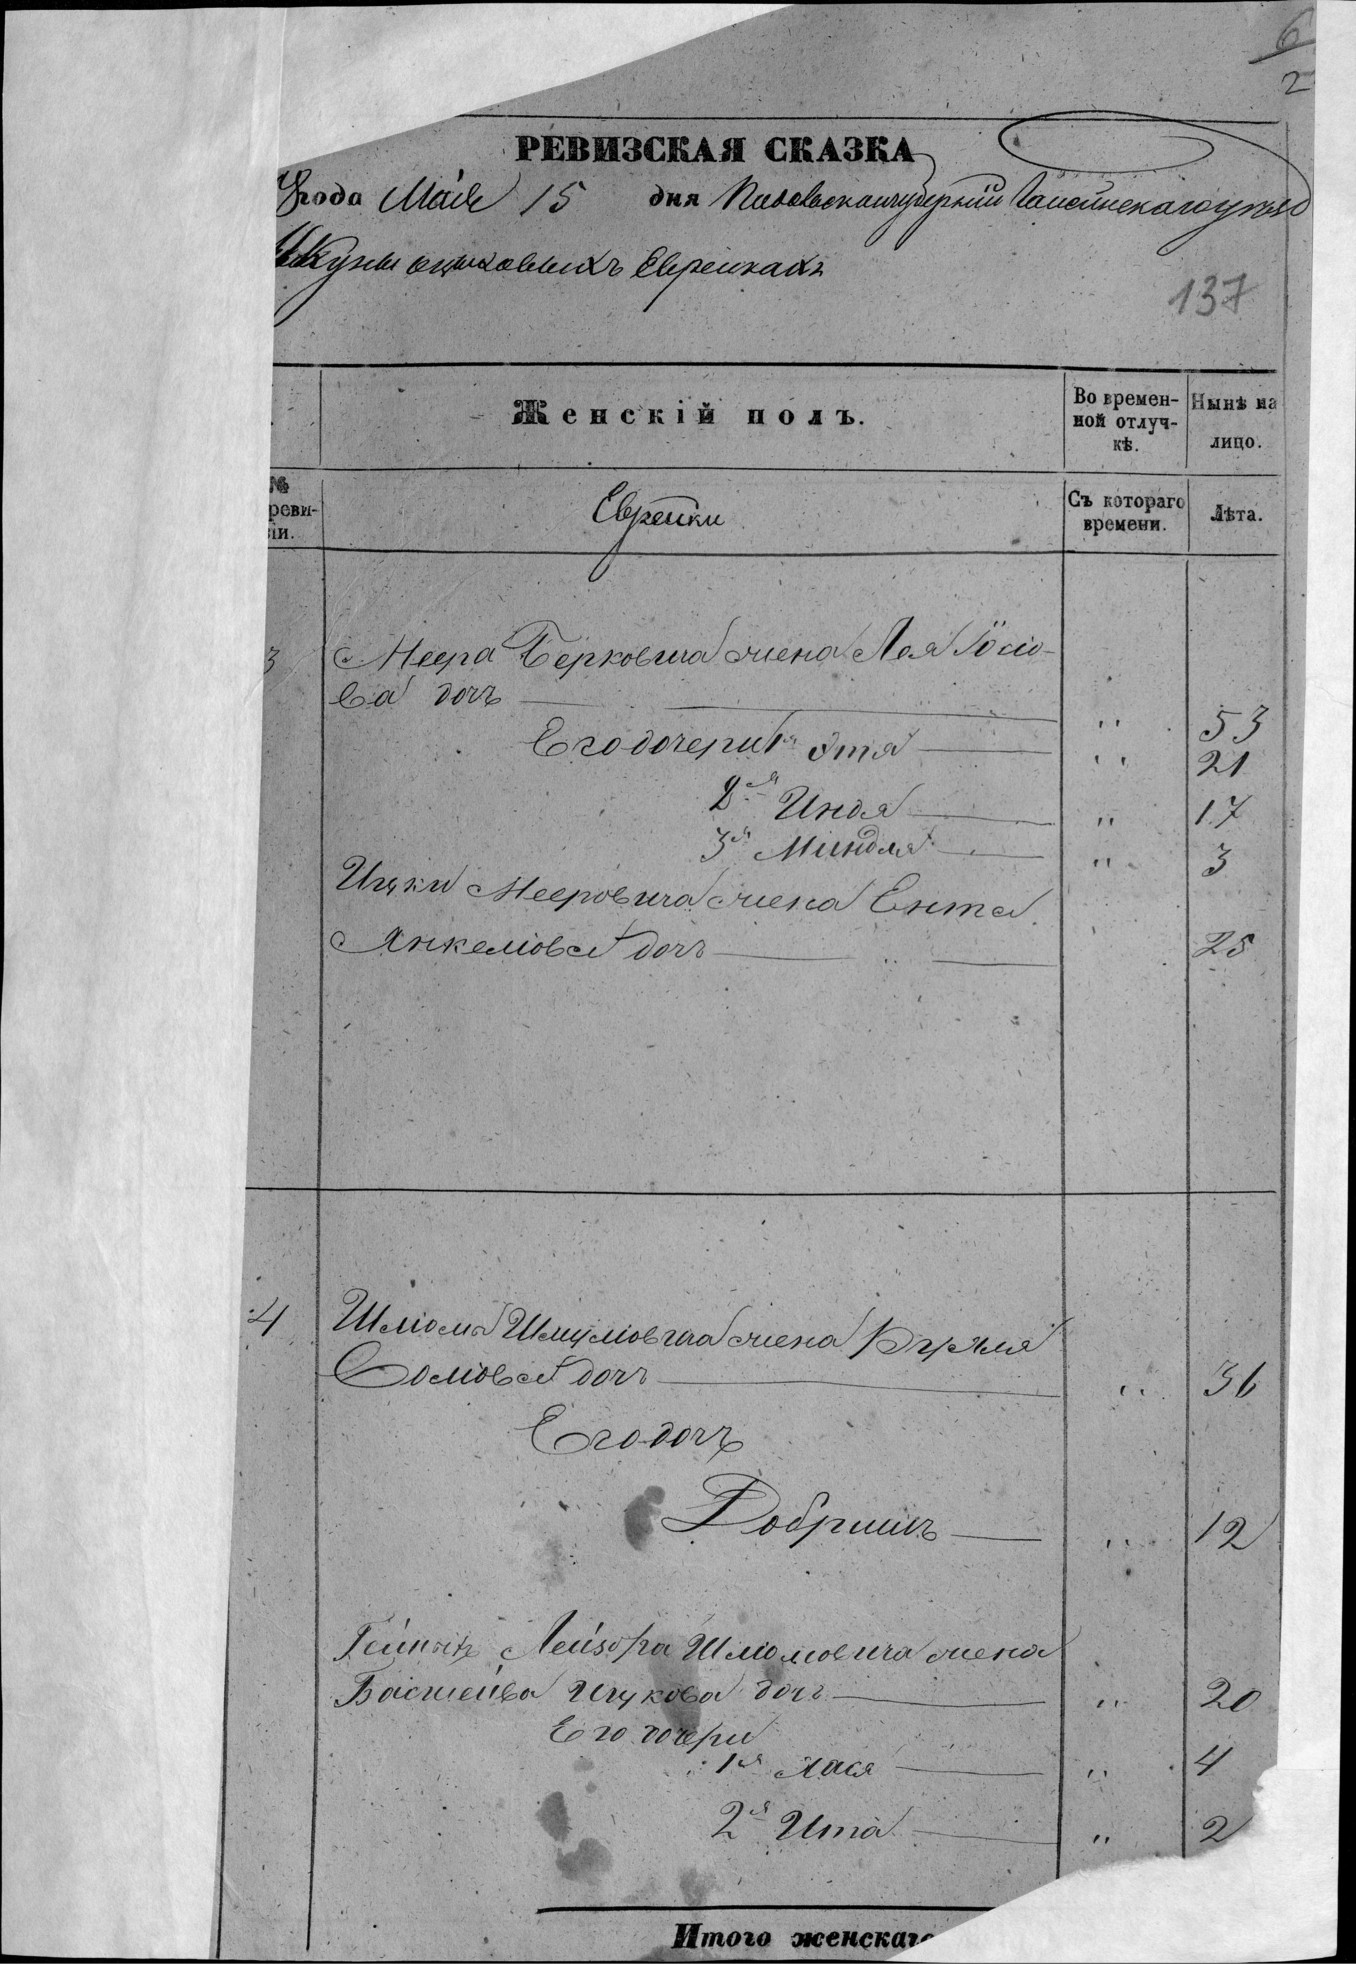 6
2
РЕВИЗСКАЯ СКАЗКА
8 года Маія 15 дня Подольской губерніи Гайсинскаго уезда
Куны Еврейкахъ
137
Женскій полъ.
Во времен-
ной отлуч-
кѣ.
Нынѣ на
лицо.
№
реви-
іи.
Еврейки
Съ котораго
времени.
Лѣта.
3 Меера Берковича жена Лея Йосіо-
ва дочь " 53
Его дочери 1я Этя " 21
2я Индя " 17
3я Миндля " 3
Ицки Мееровича жена Ента
Янкеліова дочь " 25
4 Шліомы Шмуліовича жена Бруяля
Соліова дочь " 36
Его дочь
Добришъ " 12
Лейзора Шліомовича жена
Басшейва Ицкова дочь " 20
Его дочери
1я Хася " 4
2я Ита " 2
Итого женскаго